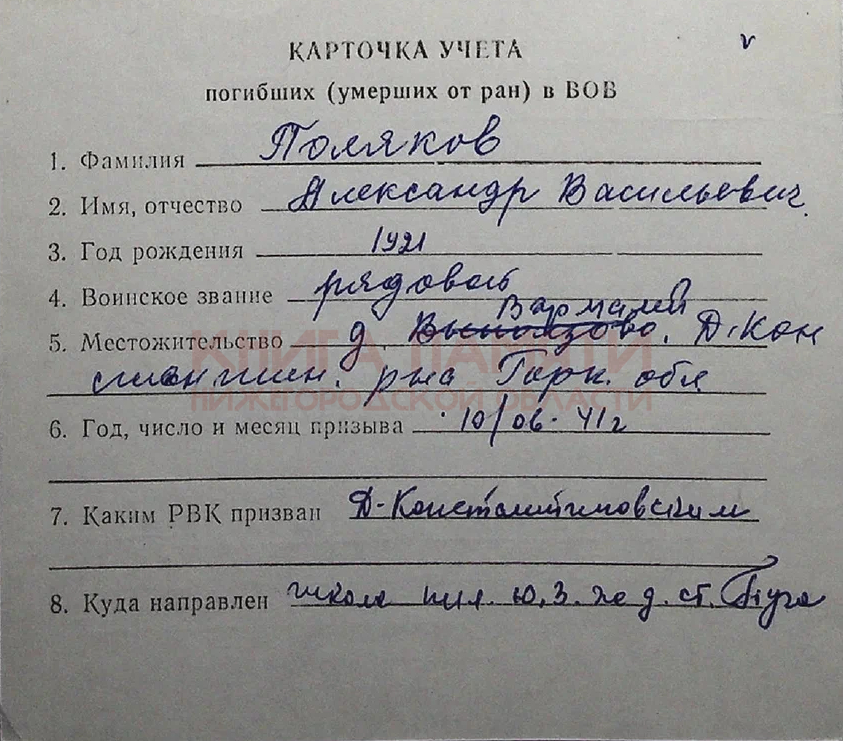 КАРТОЧКА УЧЕТА
погибших (умерших от ран) в ВОВ
1. Фамилия Поляков
2. Имя, отчество Александр Васильевич
3. Год рождения 1921
4. Воинское звание рядовой
Вармалей
5. Местожительство д. Д-Кон
стантин. р-на Горк. обл
КНИГА ПАМЯТИ
НИЖЕГОРОДСКОЙ ОБЛАСТИ
6. Год, число и месяц призыва 10/06-41г
7. Каким РВК призван Д-Константиновским
8. Куда направлен школа Ю.З. ж д. ст.